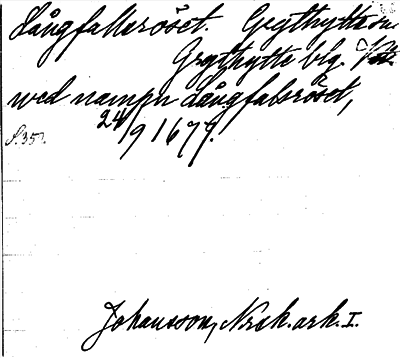 Långfallsröset. Grythytte sn.
Grythytte blg.
wed nampn Långfalsröset,
24/9 1677.
S. 357.
Johansson, Norsk. ark. I.